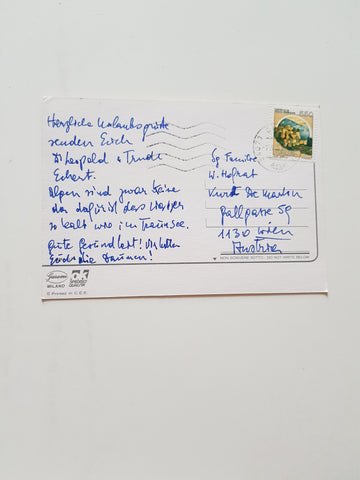 Herzliche Urlaubsgrüße
senden Euch
Leopold & Trude
Eckert.
Alpen sind zwar keine
da, dafür ist das Wasser
so kalt wie im Traunsee.
Gute Gesundheit! Wir halten
Euch die Daumen!
650
Familie
W. Hofrat
1130 Wien
Austria
NON SCRIVERE SOTTO - DO NOT WRITE BELOW
MILANO
© Printed in C.E.E.